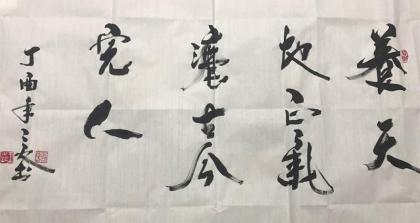 養天
地正氣
灋古今
完人
丁酉年